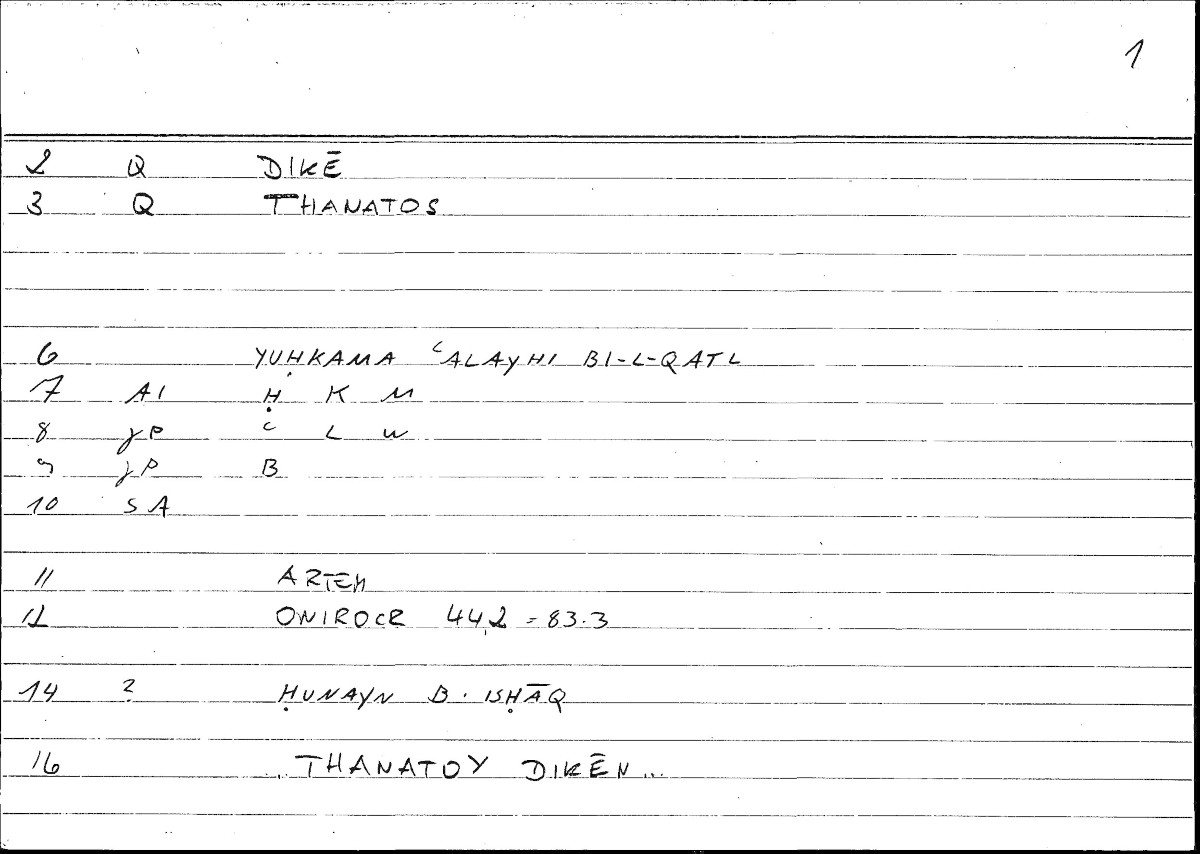 1
2 Q DIKĒ
3 Q THANATOS
6 YUḤKAMA ʿALAYHI BI-L-QATL
7 AI Ḥ K M
8 ʿ L W
9 B
10 SA
11 ARTEM
12 ONIROCR 44,2 = 83.3
14 2 ḤUNAYN B. ISḤĀQ
16 .. THANATOY DIKĒN ...